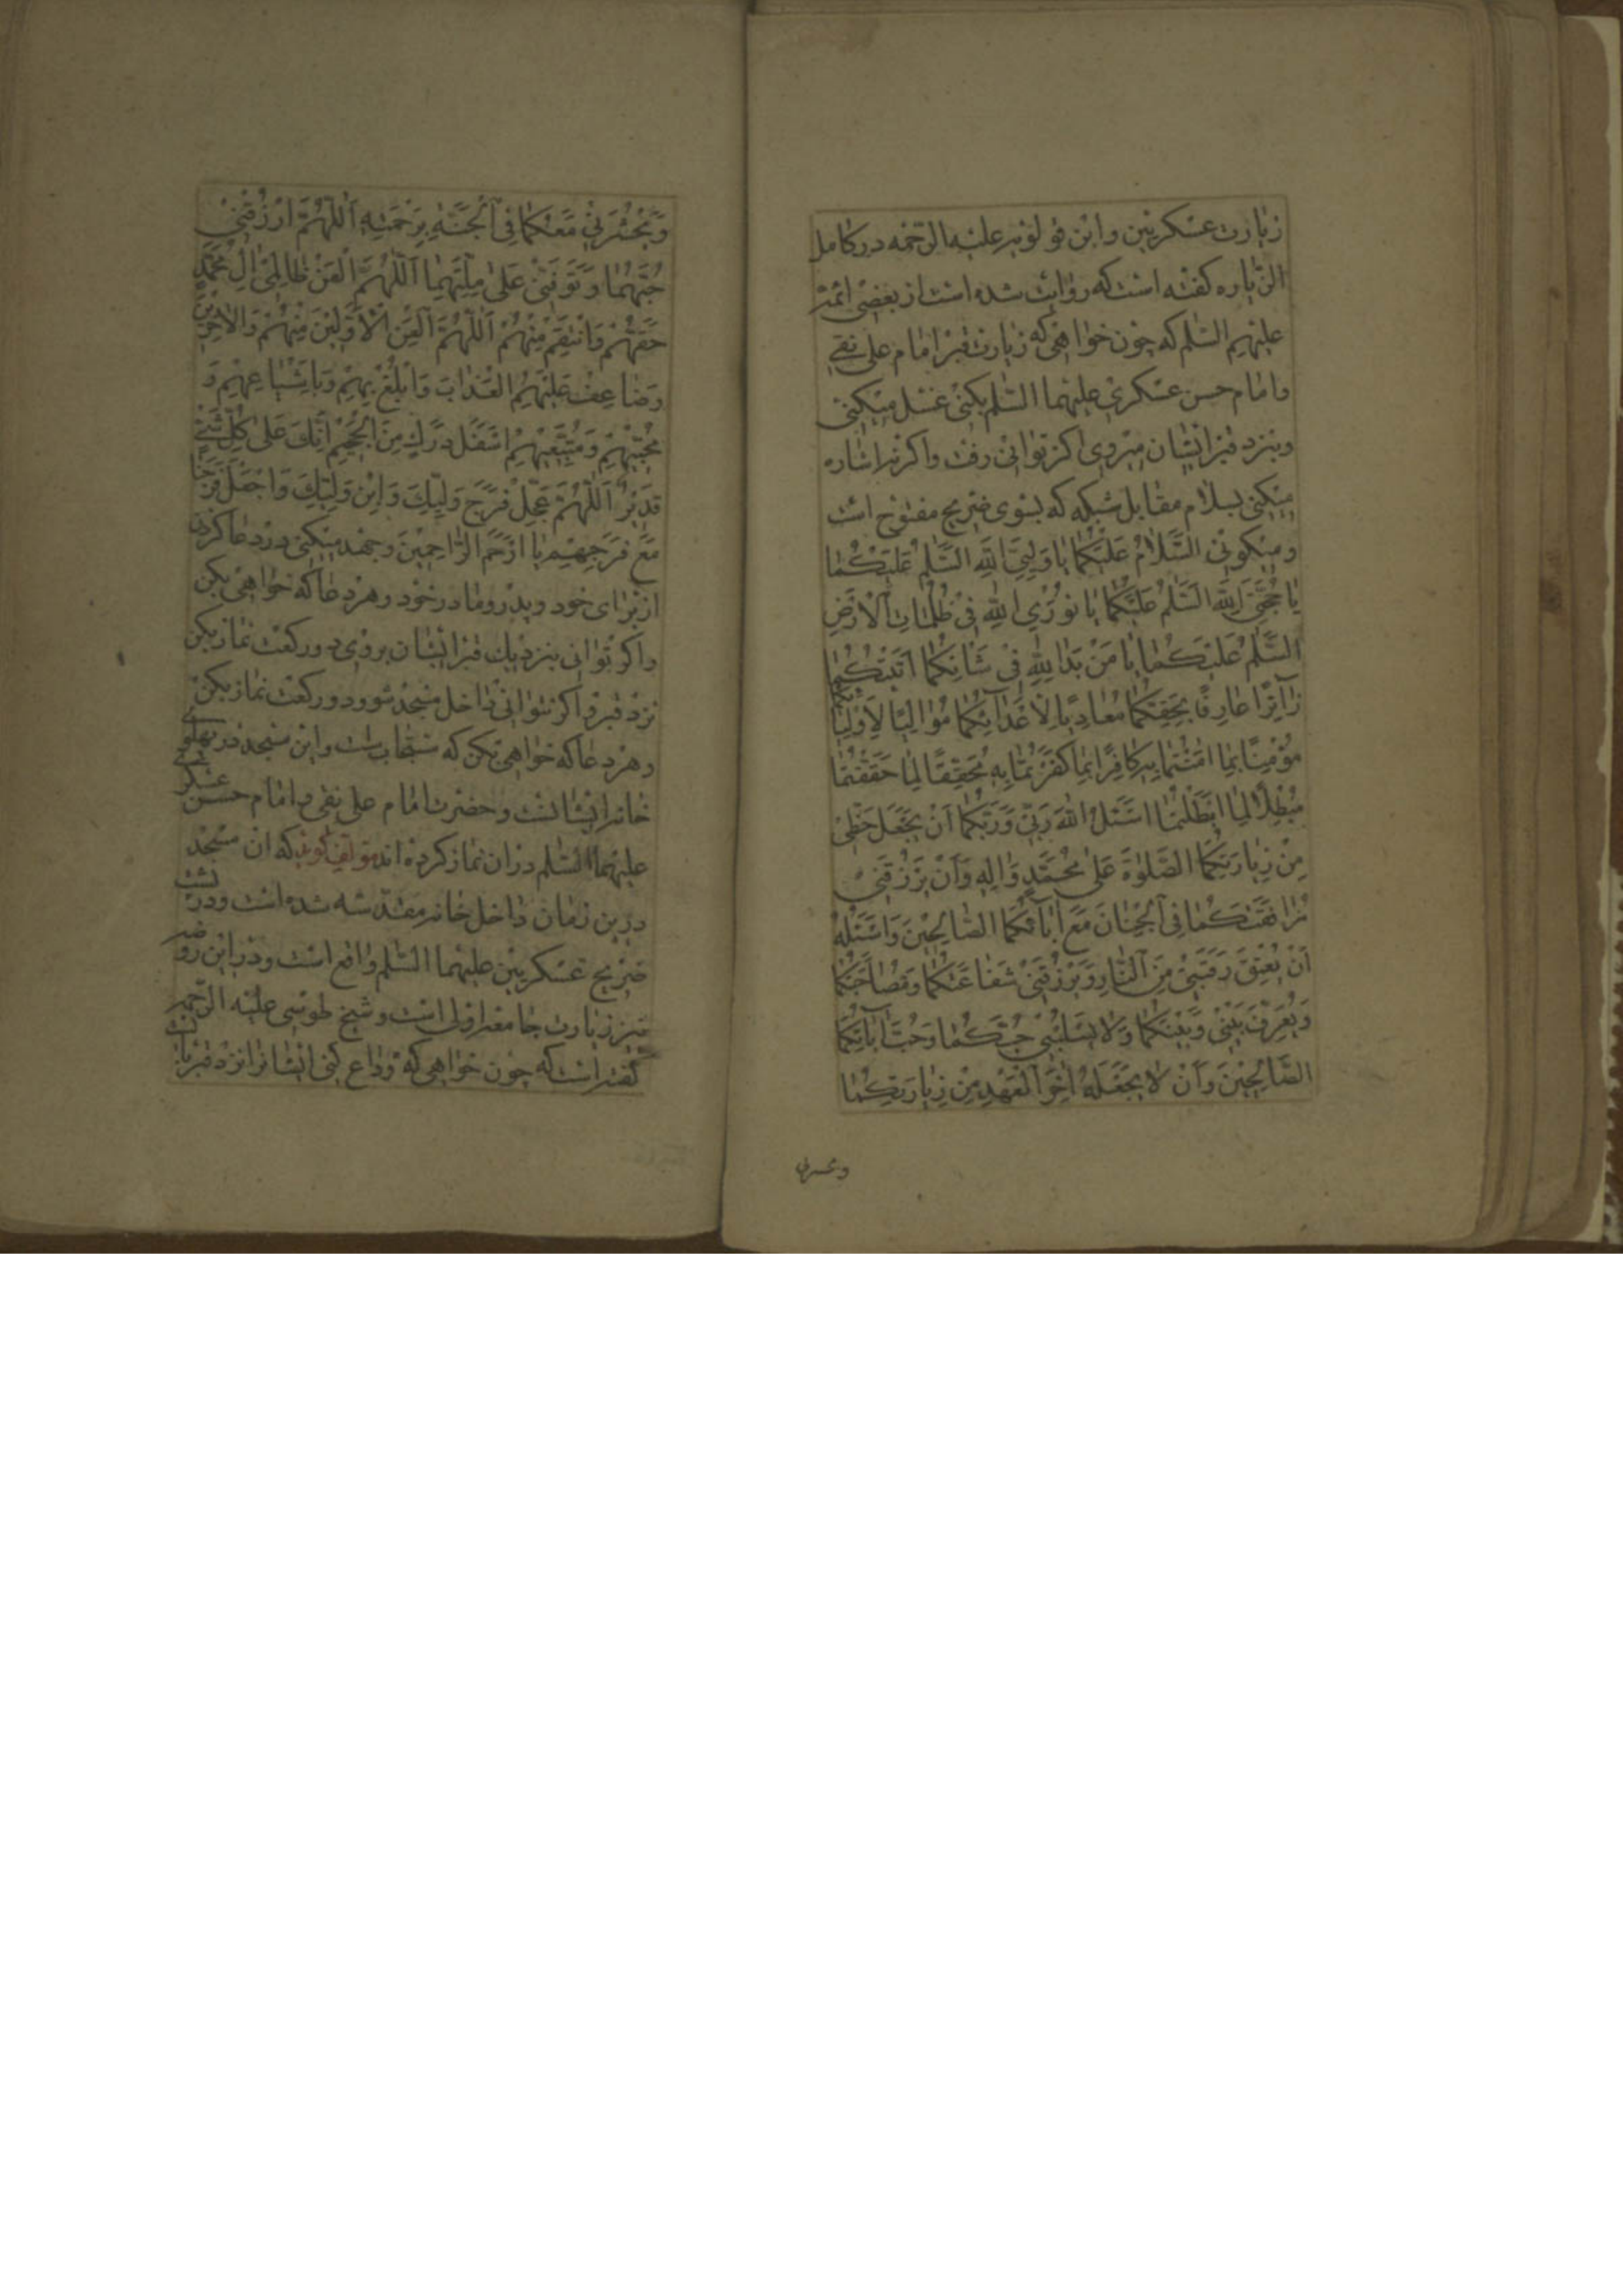 زیارت عسکریین و ابن قولویه علیه الرحمه در کامل
الزیاره کفته است که روایت شده است از بعضی ائمه
علیهم السلم که چون خواهی که زیارت قبر امام علی نقی
و امام حسن عسکری علیهما السلم بکنی غسل میکنی
و بنزد قبر ایشان میروی اکر توانی رفت و اکر نه اشاره
میکنی بسلام مقابل شبکه که بسوی ضریح مفتوح است
و میکوئی السَّلامُ عَلَیْکُما یا وَلِیَّیِ اللهِ السَّلمُ عَلَیْکُما
یا حُجَّتَیِ اللهِ السَّلمُ عَلَیْکُما یا نُورَیِ اللهِ فی ظُلُماتِ الْاَرْضِ
السَّلمُ عَلَیْکُما یا مَنْ بَدا لِلّهِ فی شَانِکُما اَتَیْتُکُما
زائِرًا عارِفًا بِحَقِّکُما مُعادِیًا لِاَعْدائِکُما مُوالِیًا لِاَوْلِیائِکُما
مُؤْمِنًا بِما امَنْتُما بِهِ کافِرًا بِما کَفَرْتُما بِهِ مُحَقِّقًا لِما حَقَّقْتُما
مُبْطِلًا لِما اَبْطَلْتُما اَسْئَلُ اللهَ رَبّی وَرَبَّکُما اَنْ یَجْعَلَ حَظّی
مِنْ زِیارَتِکُمَا الصَّلوٰةَ عَلی مُحَمَّدٍ وَالِهِ وَاَنْ یَرْزُقَنی
مُرافَقَتَکُما فِی الْجِنانِ مَعَ ابائِکُمَا الصّالِحینَ وَاَسْئَلُهُ
اَنْ یُعْتِقَ رَقَبَتی مِنَ النّارِ وَیَرْزُقَنی شَفاعَتَکُما وَمُصاحَبَتَکُما
وَیُعَرِّفَ بَیْنی وَبَیْنَکُما وَلا یَسْلُبَنی حُبَّکُما وَحُبَّ ابائِکُمَا
الصّالِحینَ وَاَنْ لا یَجْعَلَهُ اخِرَ الْعَهْدِ مِنْ زِیارَتِکُما
ویحشرنی
وَیَحْشُرَنی مَعَکُما فِی الْجَنَّةِ بِرَحْمَتِهِ اَللّهُمَّ ارْزُقْنی
حُبَّهُما وَتَوَفَّنی عَلی مِلَّتِهِما اَللّهُمَّ الْعَنْ ظالِمی الِ مُحَمَّدٍ
حَقَّهُمْ وَانْتَقِمْ مِنْهُمْ اَللّهُمَّ الْعَنِ الْاَوَّلینَ مِنْهُمْ وَالْاخِرینَ
وَضاعِفْ عَلَیْهِمُ الْعَذابَ وَابْلُغْ بِهِمْ وَبِاَشْیاعِهِمْ وَ
مُحِبّیهِمْ وَمُتَّبِعیهِمْ اَسْفَلَ دَرَکٍ مِنَ الْجَحیمِ اِنَّکَ عَلی کُلِّ شَیْءٍ
قَدیرٌ اَللّهُمَّ عَجِّلْ فَرَجَ وَلِیِّکَ وَابْنِ وَلِیِّکَ وَاجْعَلْ فَرَجَنا
مَعَ فَرَجِهِمْ یا اَرْحَمَ الرّاحِمینَ و جهد میکنی در دعا کردن
از برای خود و پدر و مادر خود و هر دعا که خواهی بکن
و اکر توانی بنزدیک قبر ایشان بروی دو رکعت نماز بکن
نزد قبر و اکر نتوانی داخل مسجد شو و دو رکعت نماز بکن
و هر دعا که خواهی بکن که مستجاب است و این مسجد در پهلوی
خانه ایشانست و حضرت امام علی نقی و امام حسن عسکری
علیهما السلم در آن نماز کرده اند مؤلف کوید که آن مسجد
در این زمان داخل خانه مقدسه شده است و در پشت
ضریح عسکریین علیهما السلم واقع است و در این روضه
نیز زیارت جامعه اولی است و شیخ طوسی علیه الرحمه
کفته است که چون خواهی که وداع کنی ایشانرا نزد قبر بایست